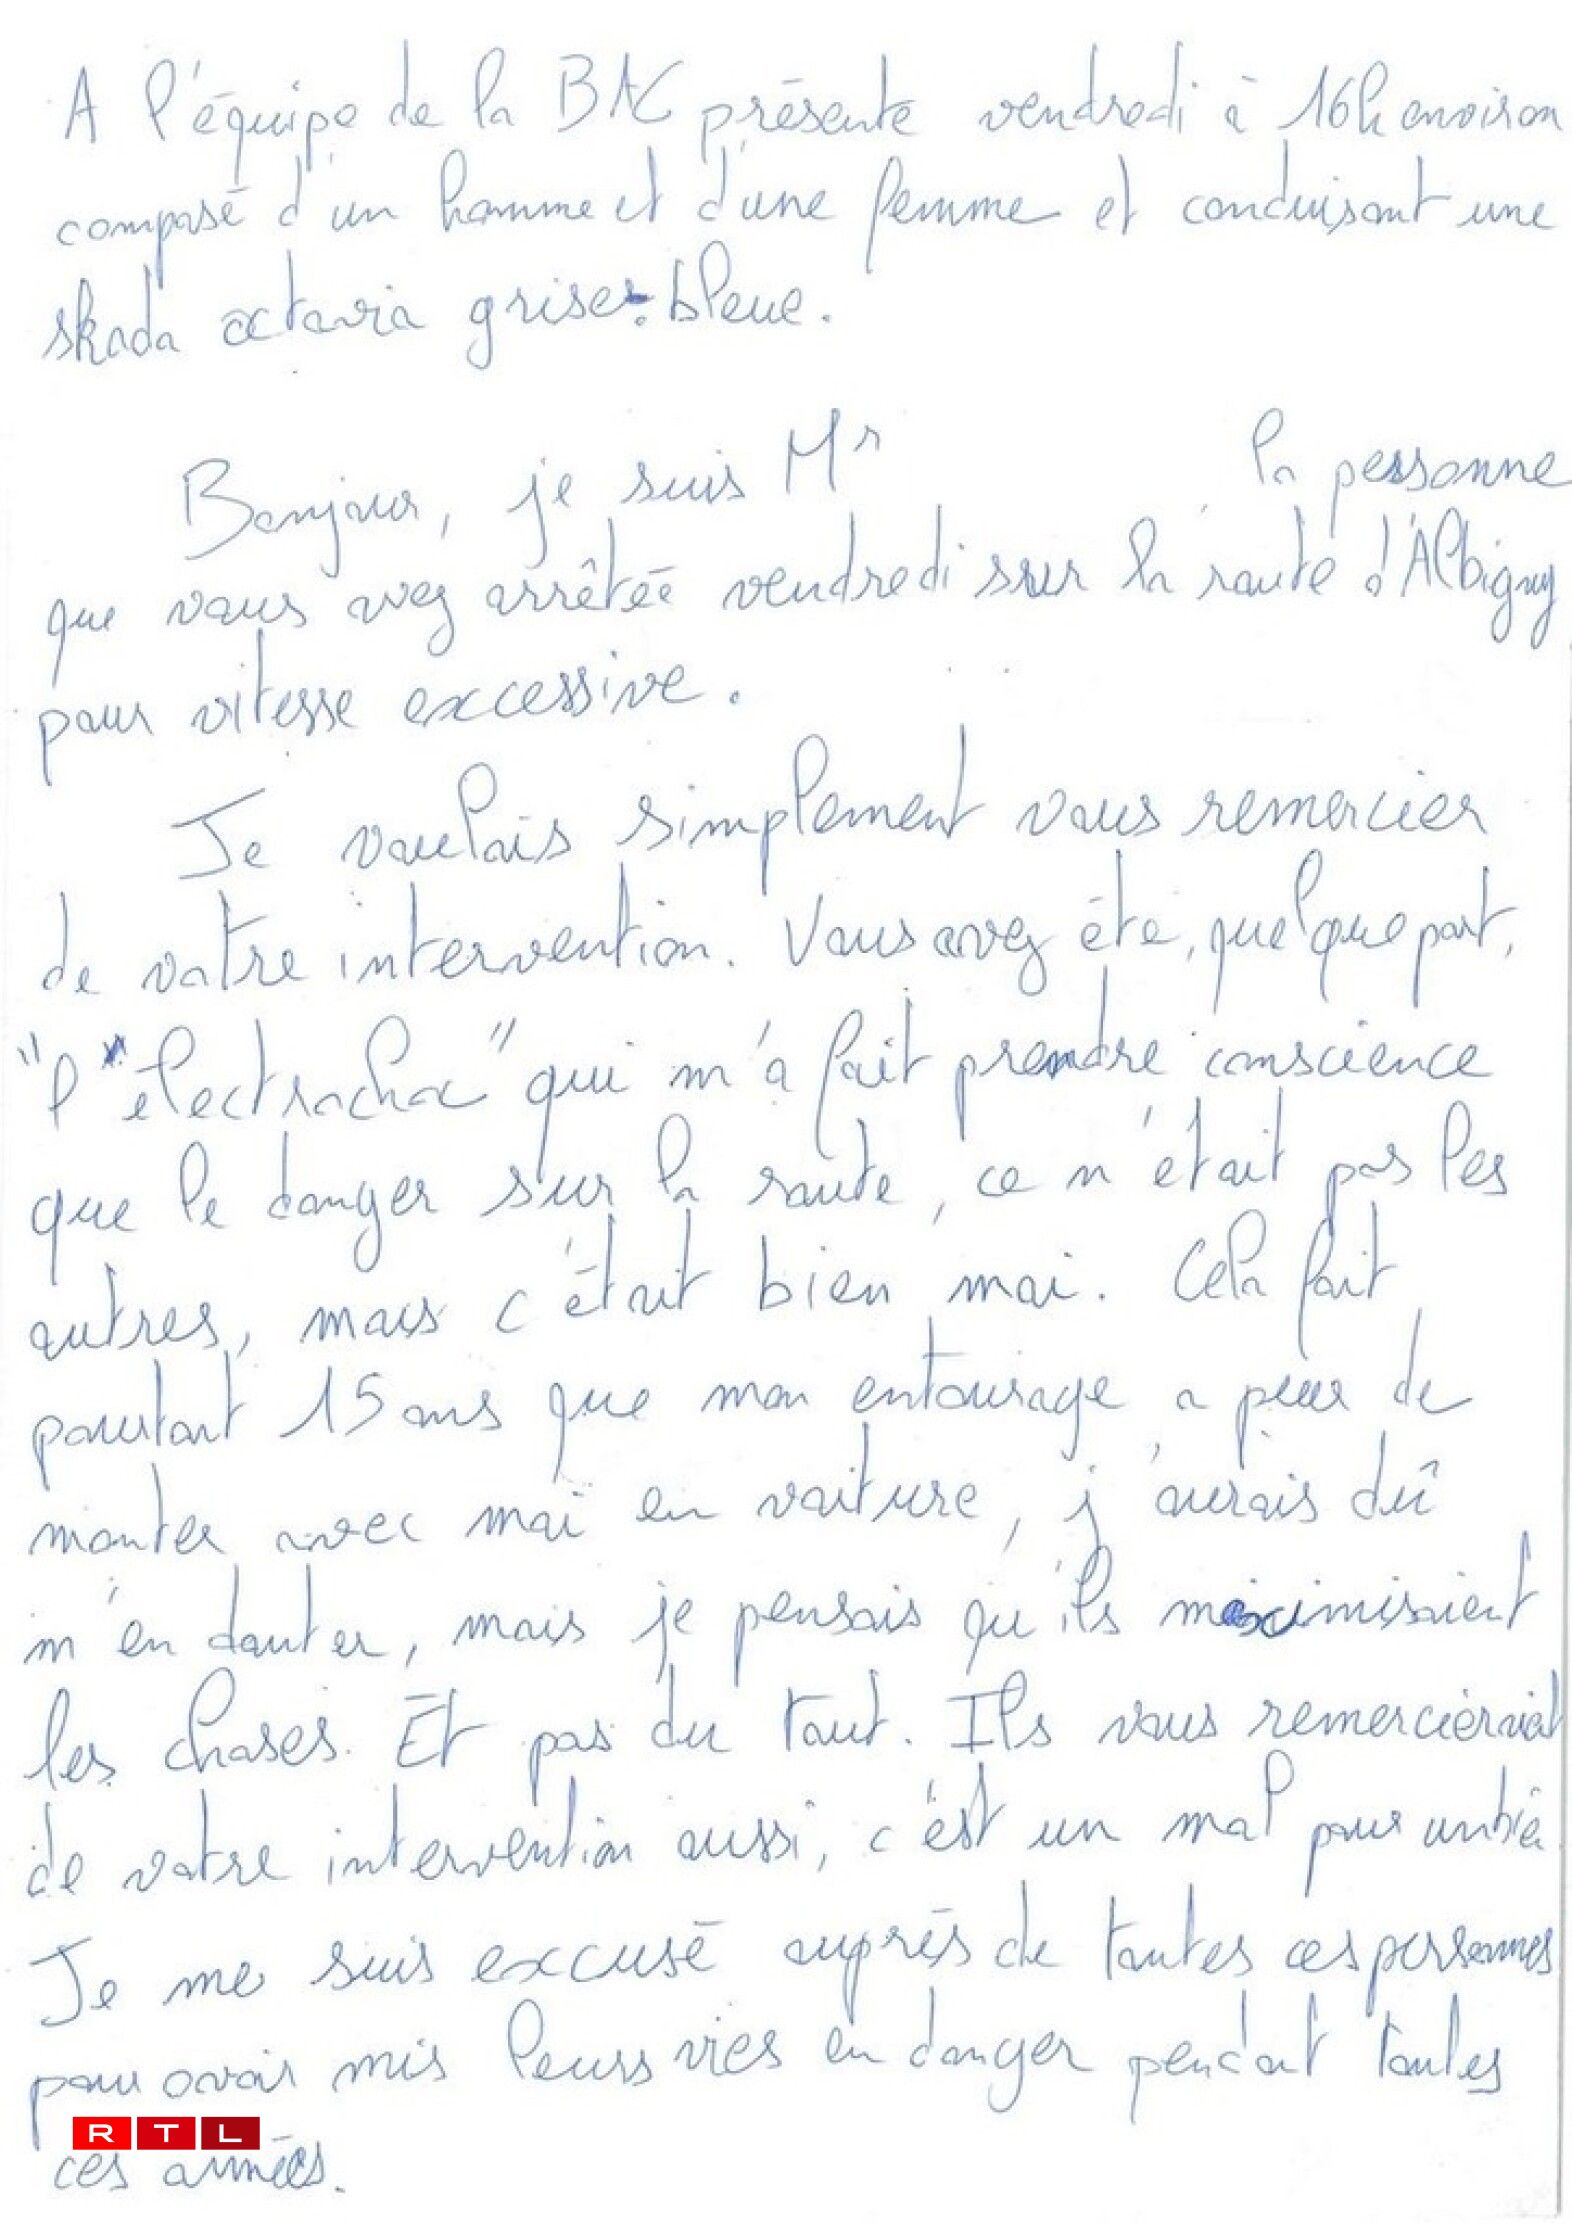 A l'équipe de la BAC présente vendredi à 16h environ
composé d'un homme et d'une femme et conduisant une
skoda octavia grise-bleue.
Bonjour, je suis Mr la personne
que vous avez arrêtée vendredi sur la route d'Albigny
pour vitesse excessive.
Je voulais simplement vous remercier
de votre intervention. Vous avez été, quelque part,
"l'électrochoc" qui m'a fait prendre conscience
que le danger sur la route, ce n'était pas les
autres, mais c'était bien moi. Cela fait
pourtant 15 ans que mon entourage a peur de
monter avec moi en voiture, j'aurais dû
m'en douter, mais je pensais qu'ils maximisaient
les choses. Et pas du tout. Ils vous remercieraient
de votre intervention aussi, c'est un mal pour un bien
Je me suis excusé auprès de toutes ces personnes
pour avoir mis leurs vies en danger pendant toutes
RTL
ces années.